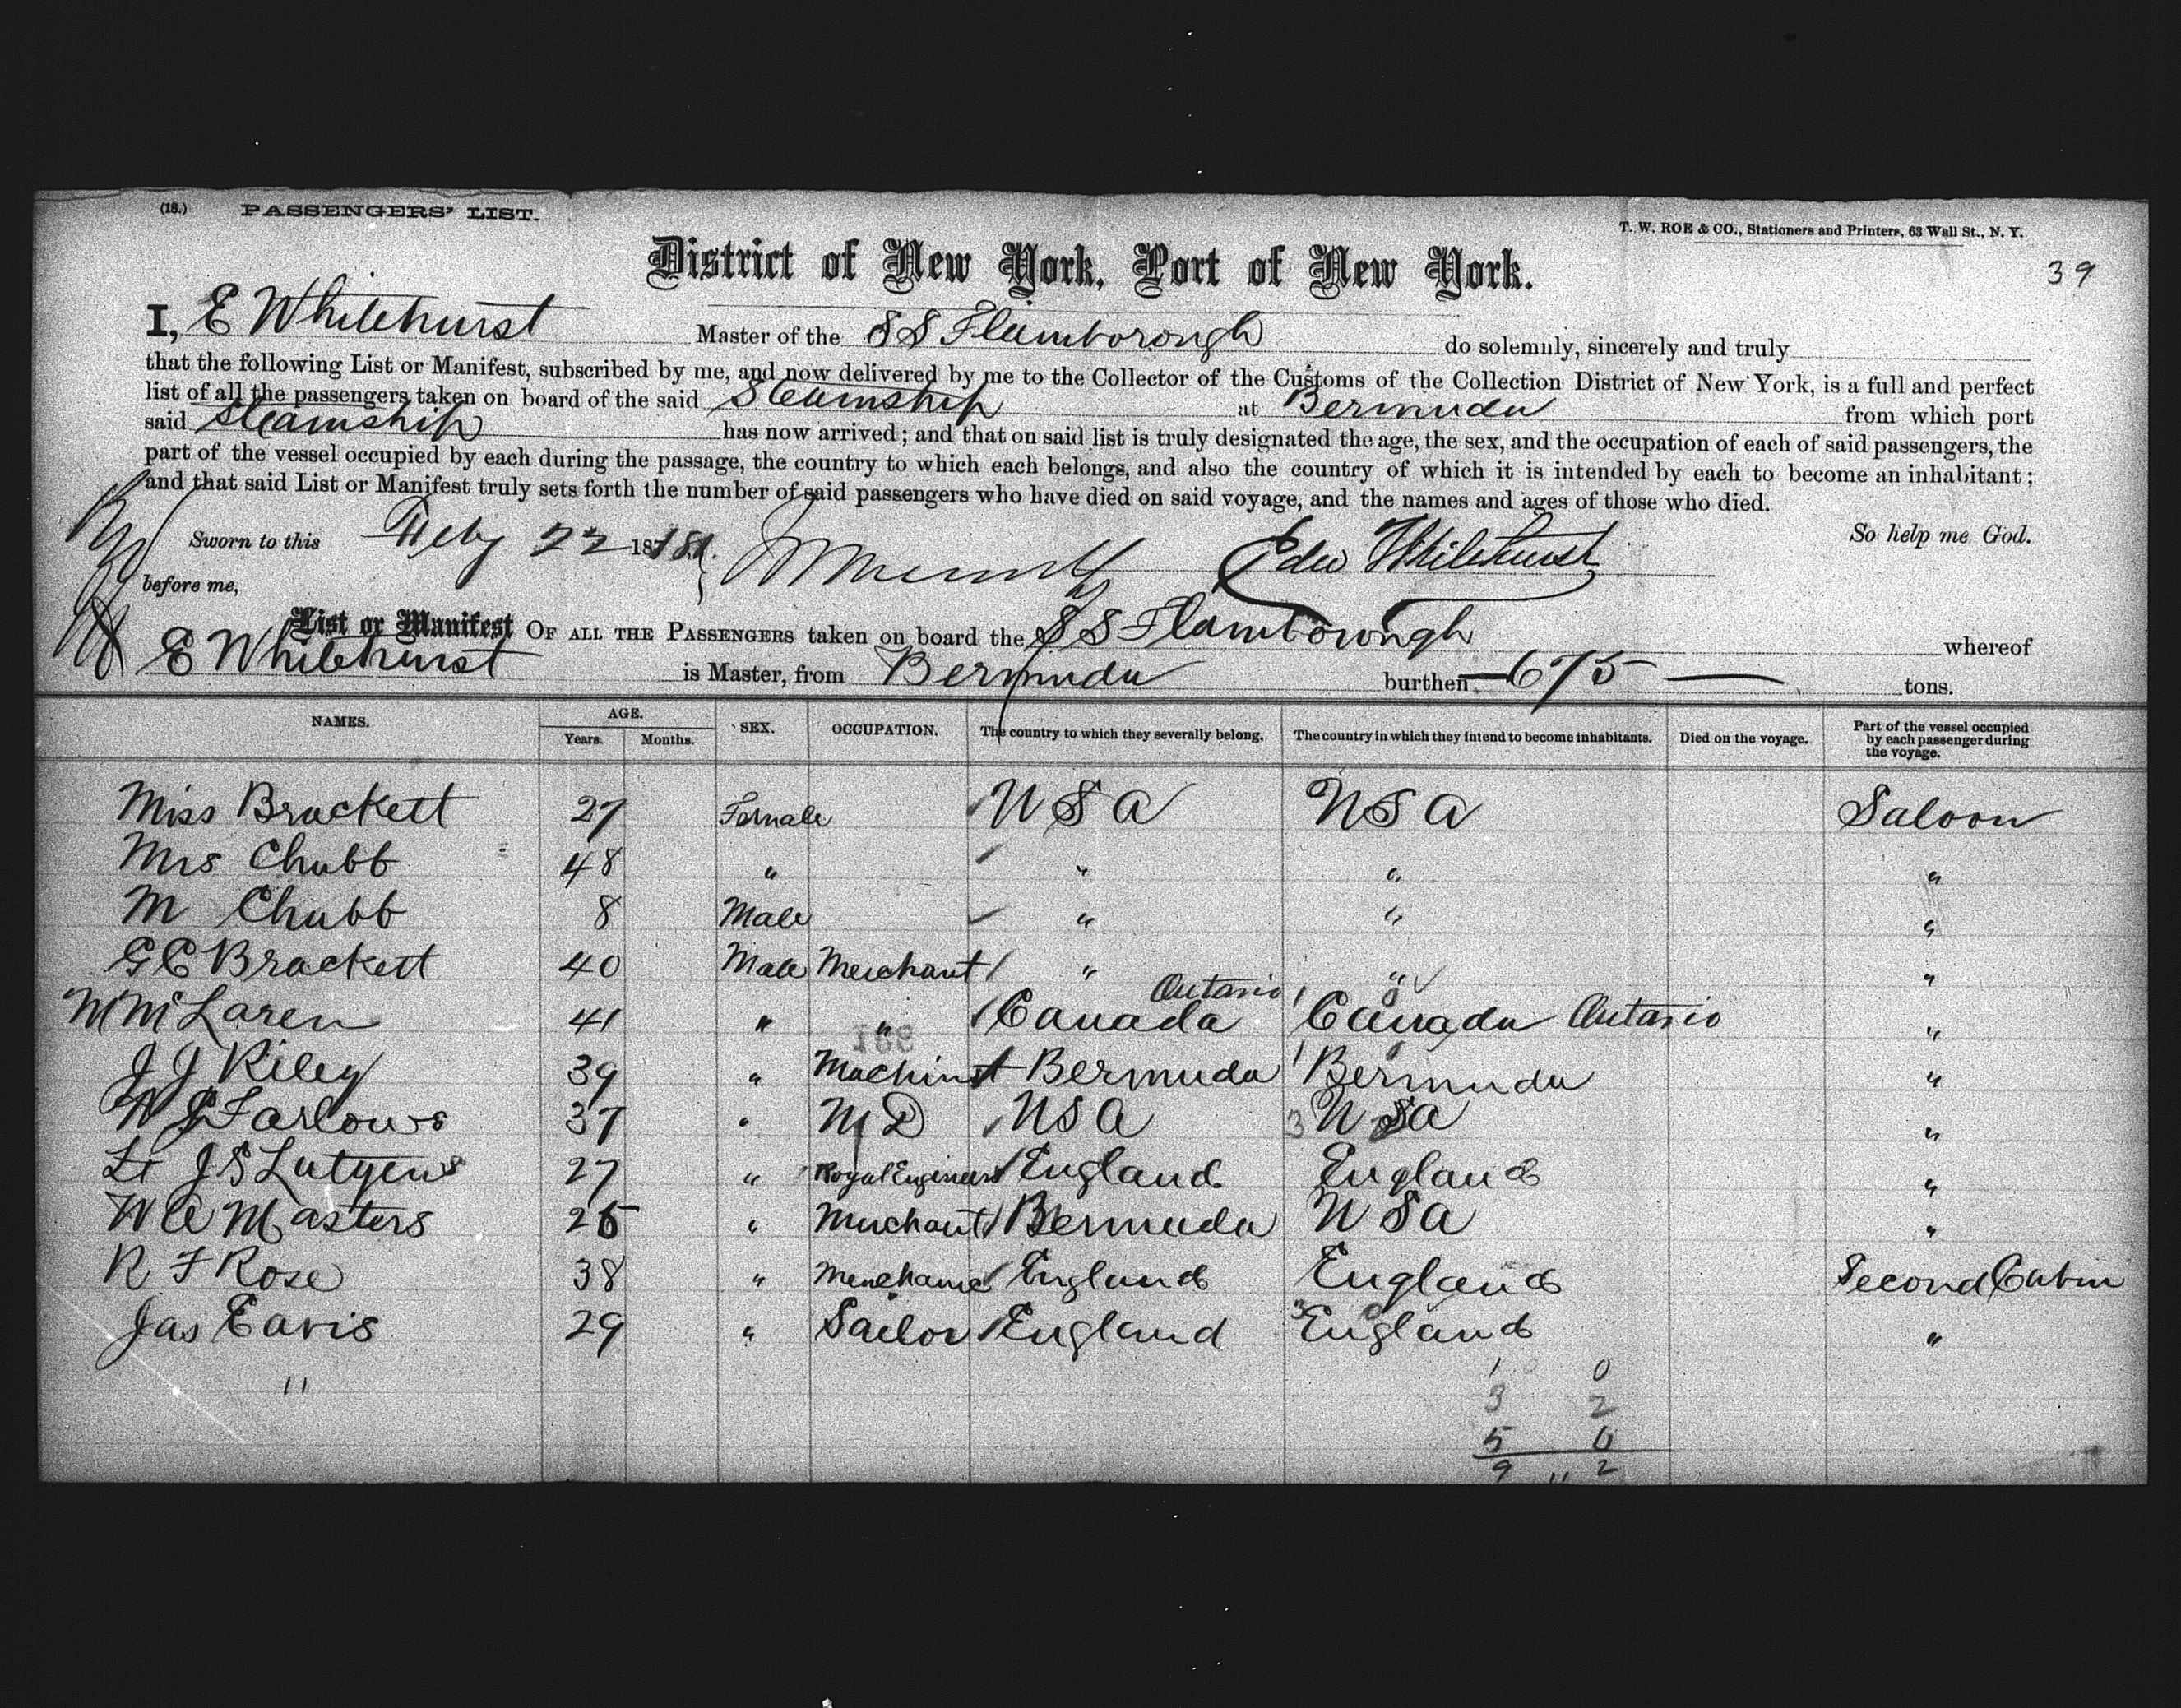 (18.) PASSENGERS' LIST.
T. W. ROE & CO., Stationers and Printers, 63 Wall St., N. Y.
39
District of New York, Port of New York.
I, E Whitehurst Master of the S S Flamborough do solemnly, sincerely and truly
that the following List or Manifest, subscribed by me, and now delivered by me to the Collector of the Customs of the Collection District of New York, is a full and perfect
list of all the passengers taken on board of the said Steamship at Bermuda from which port
said Steamship has now arrived; and that on said list is truly designated the age, the sex, and the occupation of each of said passengers, the
part of the vessel occupied by each during the passage, the country to which each belongs, and also the country of which it is intended by each to become an inhabitant;
and that said List or Manifest truly sets forth the number of said passengers who have died on said voyage, and the names and ages of those who died.
So help me God.
Sworn to this Feby 22 1881. Edw Whitehurst
before me,
List or Manifest OF ALL THE PASSENGERS taken on board the S S Flamborough whereof
E Whitehurst is Master, from Bermuda burthen 675 tons.
NAMES. AGE. Years. Months. SEX. OCCUPATION. The country to which they severally belong. The country in which they intend to become inhabitants. Died on the voyage. Part of the vessel occupied by each passenger during the voyage.
Miss Brackett 27 Female USA USA Saloon
Mrs Chubb 48 " " " "
M Chubb 8 Male " " "
G C Brackett 40 Male Merchant " " "
M McLaren 41 " " Canada Ontario Canada Ontario "
J J Riley 39 " Machinist Bermuda Bermuda "
W G Farlows 37 " M D USA USA "
Lt J S Lutyens 27 " Royal Engineers England England "
W A Masters 25 " Merchant Bermuda USA "
R F Rose 38 " Mechanic England England Second Cabin
Jas Earis 29 " Sailor England England "
11
1 0
3 2
5 0
9 " 2